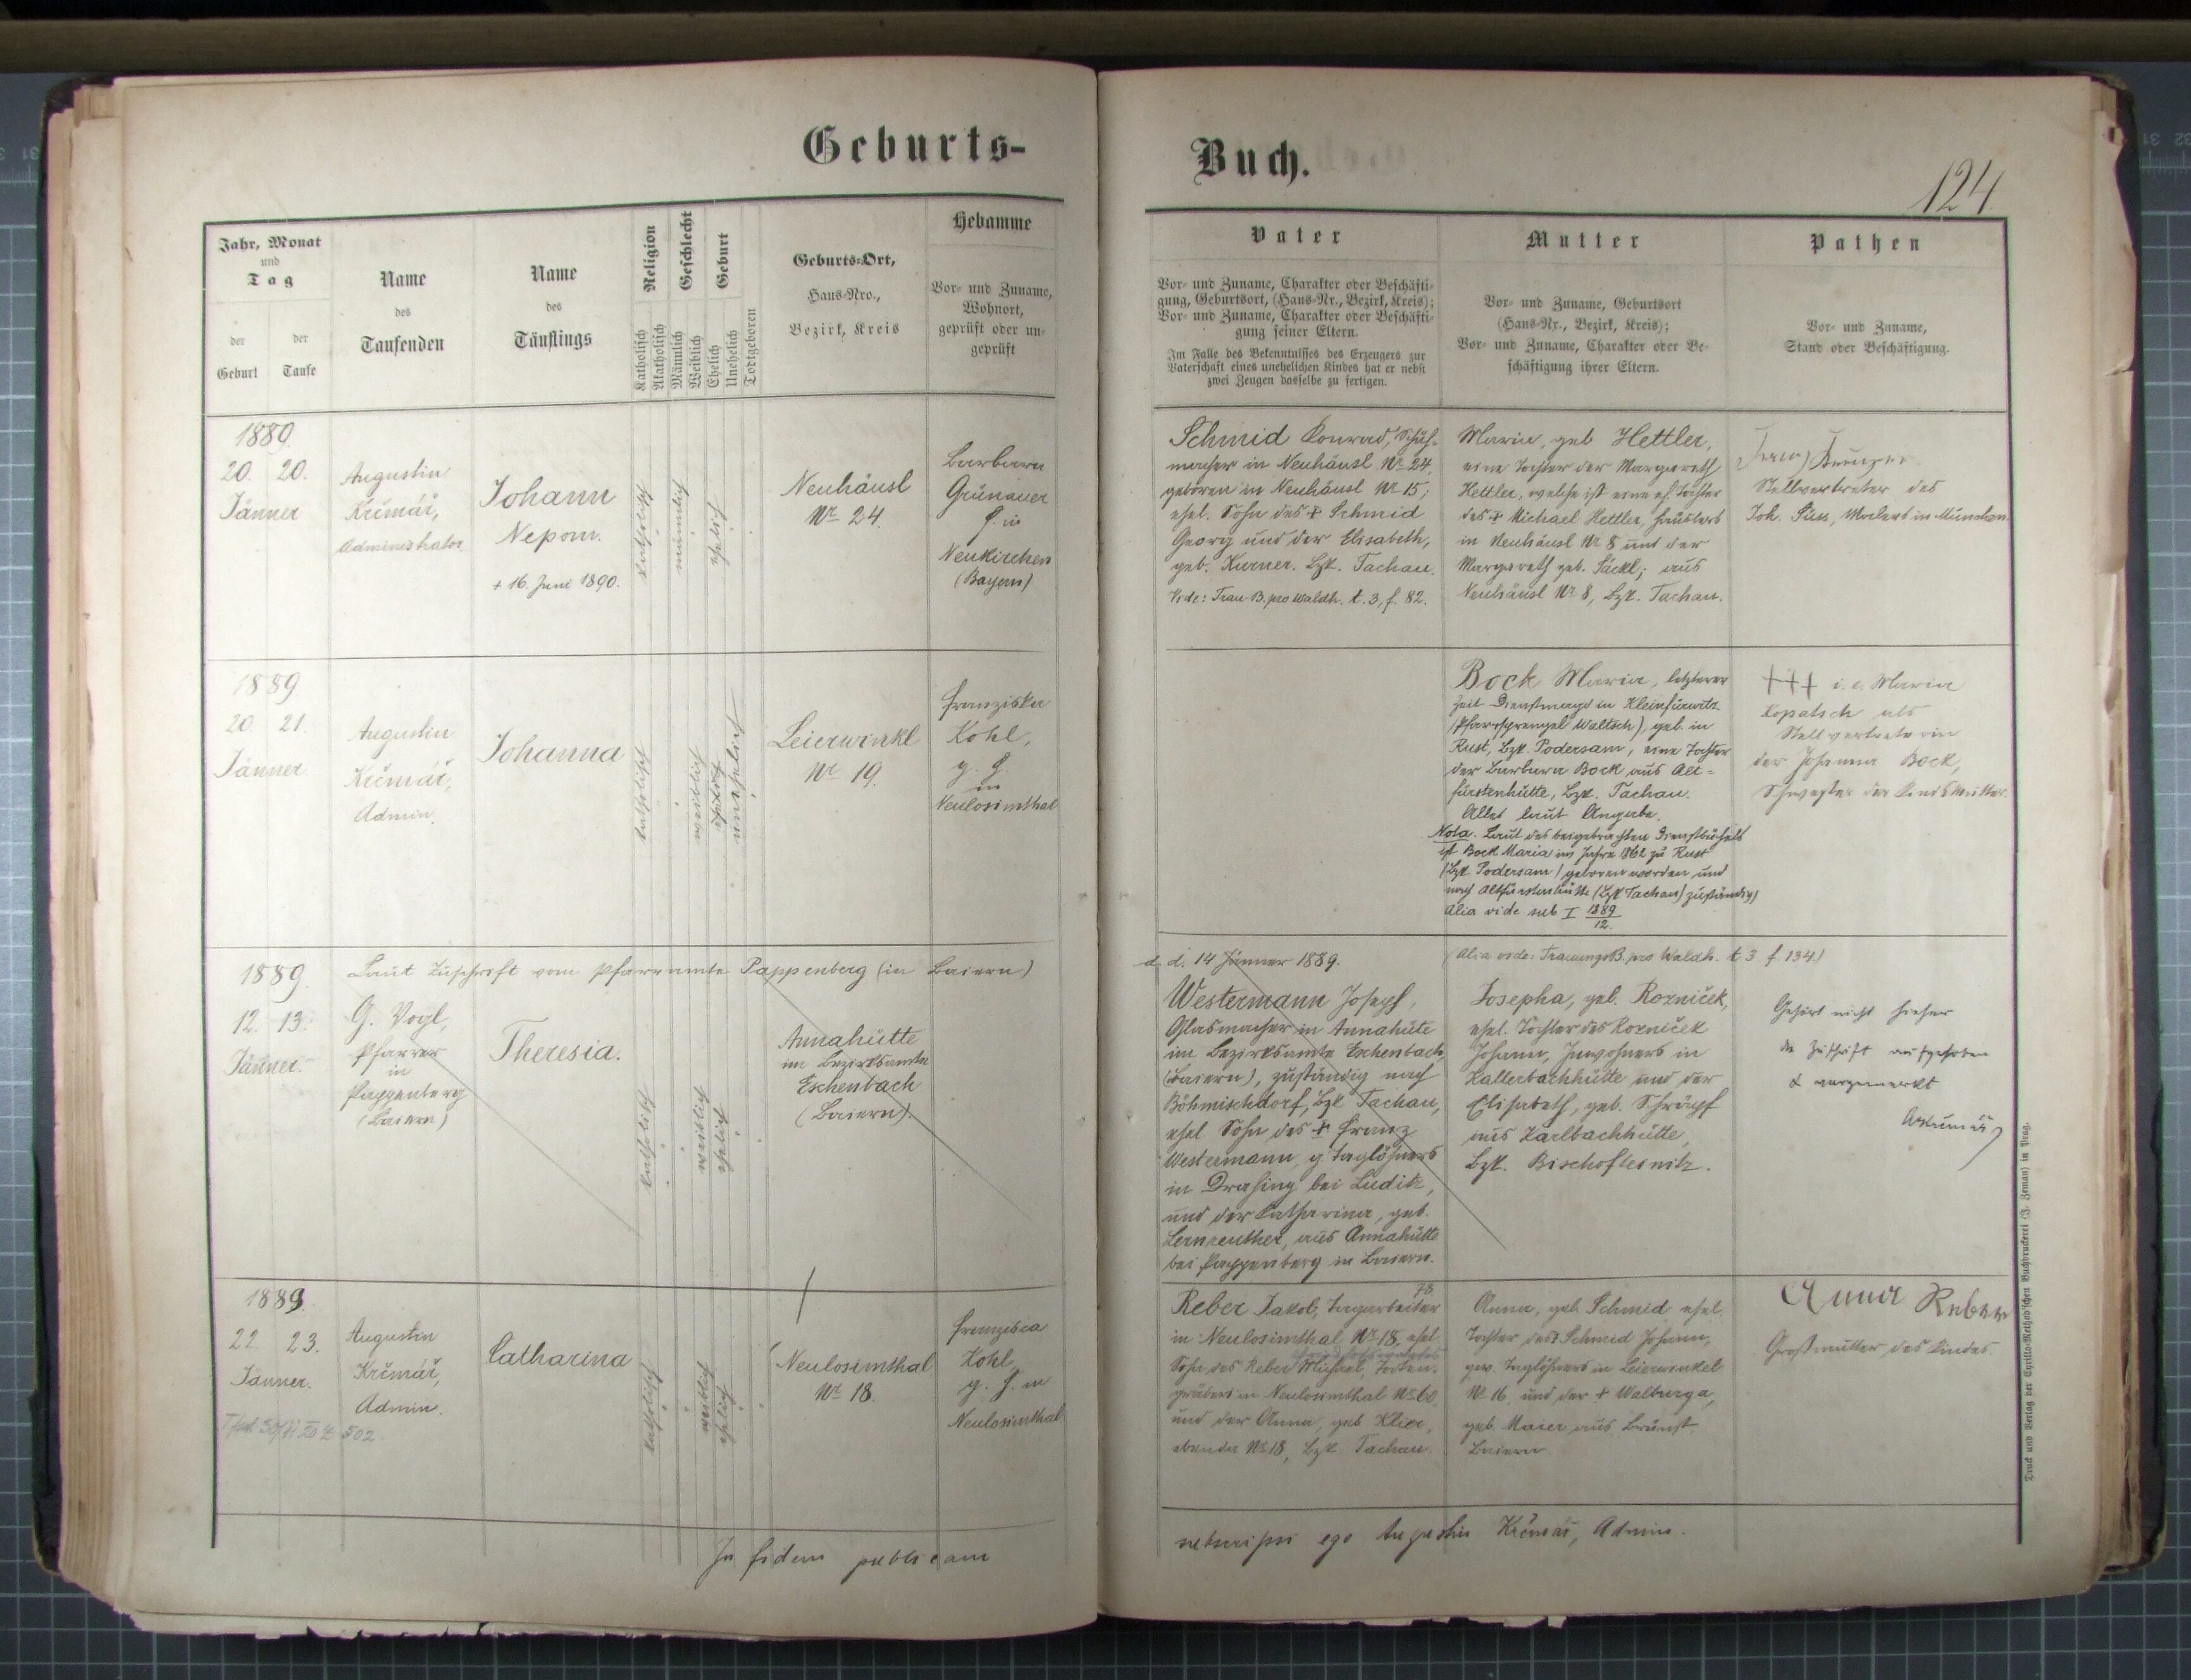 Geburts-
Buch.
124
Jahr, Monat
und
Tag
der
Geburt
der
Taufe
Name
des
Taufenden
Name
des
Täuflings
Religion
Katholisch
Akatholisch
Geschlecht
Männlich
Weiblich
Geburt
Ehelich
Unehelich
Todtgeboren
Geburts-Ort,
Haus-Nro.,
Bezirk, Kreis
Hebamme
Vor- und Zuname,
Wohnort,
geprüft oder un-
geprüft
Vater
Vor- und Zuname, Charakter oder Beschäfti-
gung, Geburtsort, (Haus-Nr., Bezirk, Kreis);
Vor- und Zuname, Charakter oder Beschäfti-
gung seiner Eltern.
Im Falle des Bekenntnisses des Erzeugers zur
Vaterschaft eines unehelichen Kindes hat er nebst
zwei Zeugen dasselbe zu fertigen.
Mutter
Vor- und Zuname, Geburtsort
(Haus-Nr., Bezirk, Kreis);
Vor- und Zuname, Charakter oder Be-
schäftigung ihrer Eltern.
Pathen
Vor- und Zuname,
Stand oder Beschäftigung.
1889.
20. 20.
Jänner
Augustin
Krčmář,
Administrator
Johann
Nepom.
+ 16. Juni 1890.
katholisch
männlich
ehelich
Neuhäusl
Nr 24.
Barbara
Grünauer
g. in
Neukirchen
(Bayern)
Schmid Konrad, Schuh-
macher in Neuhäusl Nr 24,
geboren in Neuhäusl Nr 15;
ehel. Sohn des + Schmid
Georg und der Elisabeth,
geb. Kurner. Bzk. Tachau.
Vide: Trau B. pro Waldh. t. 3, f. 82.
Maria, geb Hettler,
eine Tochter der Margareth
Hettler, welche ist eine eh. Tochter
des + Michael Hettler, Häuslers
in Neuhäusl Nr 8 und der
Margareth geb. Säckl; aus
Neuhäusl Nr 8, Bzk. Tachau.
Stellvertreter des
Joh. Süss, Malers in München.
1889
20. 21.
Jänner
Augustin
Krčmář,
Admin.
Johanna
katholisch
weiblich
ehelich
unehelich
Leierwinkl
Nr 19.
Franziska
Kohl,
g. g.
in
Neulosimthal
Bock Maria, letzterer
Zeit Dienstmagd in Kleinfürwitz
(Pfarrsprengel Waltsch), geb. in
Rust, Bzk. Podersam, eine Tochter
der Barbara Bock aus Alt-
fürstenhütte, Bzk. Tachau.
Alles laut Angabe.
Nota. Laut des beigebrachten Dienstbüchels
ist Bock Maria im Jahre 1862 zu Rust
(Bzk. Podersam) geboren worden und
nach Altfürstenhütte (Bzk Tachau) zuständig)
Alia vide sub I 1889
12.
+++ i. e. Maria
Kopatsch als
Stellvertreterin
der Johanna Bock,
Schwester der Kindsmutter.
1889.
Laut Zuschrift vom Pfarramte Pappenberg (in Baiern)
d. d. 14 Jänner 1889.
(Alia vide: TrauungsB. pro Waldh. t. 3 f. 134)
12. 13.
Jänner.
G. Vogl,
Pfarrer
in
Pappenberg
(Baiern)
Theresia.
katholisch
weiblich
ehelich
Annahütte
im Bezirksamte
Eschenbach
(Baiern).
Westermann Joseph,
Glasmacher in Annahüte
im Bezirksamte Eschenbach
(Baiern), zuständig nach
Böhmischdorf, Bzk Tachau,
ehel Sohn des + Franz
Westermann, g. Taglöhners
in Drahing bei Luditz,
und der Katharina, geb.
Lernreuther, aus Annahütte
bei Pappenberg in Baiern.
Josepha, geb. Rozniček,
ehel. Tochter des Rozniček
Johann, Inwohners in
Kallerbachhütte und der
Elisabeth, geb. Schröpf
aus Karlbachhütte,
Bzk. Bischofteinitz.
Gehört nicht hieher
die Zuschrift aufgehoben
& vorgemerkt
AKrčmář
1889.
22. 23.
Jänner.
Augustin
Krčmář,
Admin.
Catharina
katholisch
weiblich
ehelich
Neulosimthal
Nr 18.
Franzisca
Kohl
g. g. in
Neulosimthal
Reber Jakob, Tagarbeiter
in Neulosimthal Nr 18, ehel.
Sohn des Reber Michael, Todten-
gräbers in Neulosimthal Nr 60
und der Anna, geb. Klier,
ebenda Nr 18, Bzk. Tachau.
Anna, geb. Schmid ehel.
Tochter des + Schmid Johann,
gew. Taglöhners in Leierwinkel
Nr 16 und der + Walburga,
geb. Maier aus Brünst,
Baiern.
Anna Reber
Großmutter des Kindes
In fidem publicam
subscripsi ego Augustin Krčmář, Admin.
Druck und Verlag der Cyrillo-Method'schen Buchdruckerei (J. Zeman) in Prag.